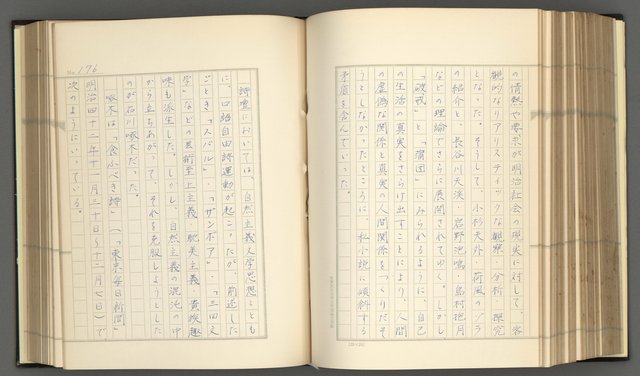 の情熱や要求が明治社会の現実に対して、客
観的なリアリスティックな観察、分析、探究
となった。そうして、小杉天外、荷風のゾラ
の紹介と、長谷川天渓・岩野泡鳴・島村抱月
などの理論でさらに展開されてゆく。しかし
「破戒」と「蒲団」にみられるように、自己
の生活の真実をさらけ出すことにより、人間
の虚偽な関係と真実の人間関係をつくりだそ
うとしなかったところに、私小説へ傾斜する
矛盾を含んでいった。
No. 176
詩壇においては、自然主義文学思想ととも
に、口語自由詩運動が起こったが、前述した
ごとき「スバル」・「ザンボア」・「三田文
学」などの芸術至上主義、耽美主義、貴族趣
味も派生した。しかし、自然主義の混沌の中
から立ちあがって、それを克服しようとした
のが石川啄木だった。
啄木は「食ふべき詩」（「東京毎日新聞」
明治四十二年十一月三十日～十二月七日）で
次のようにいっている。